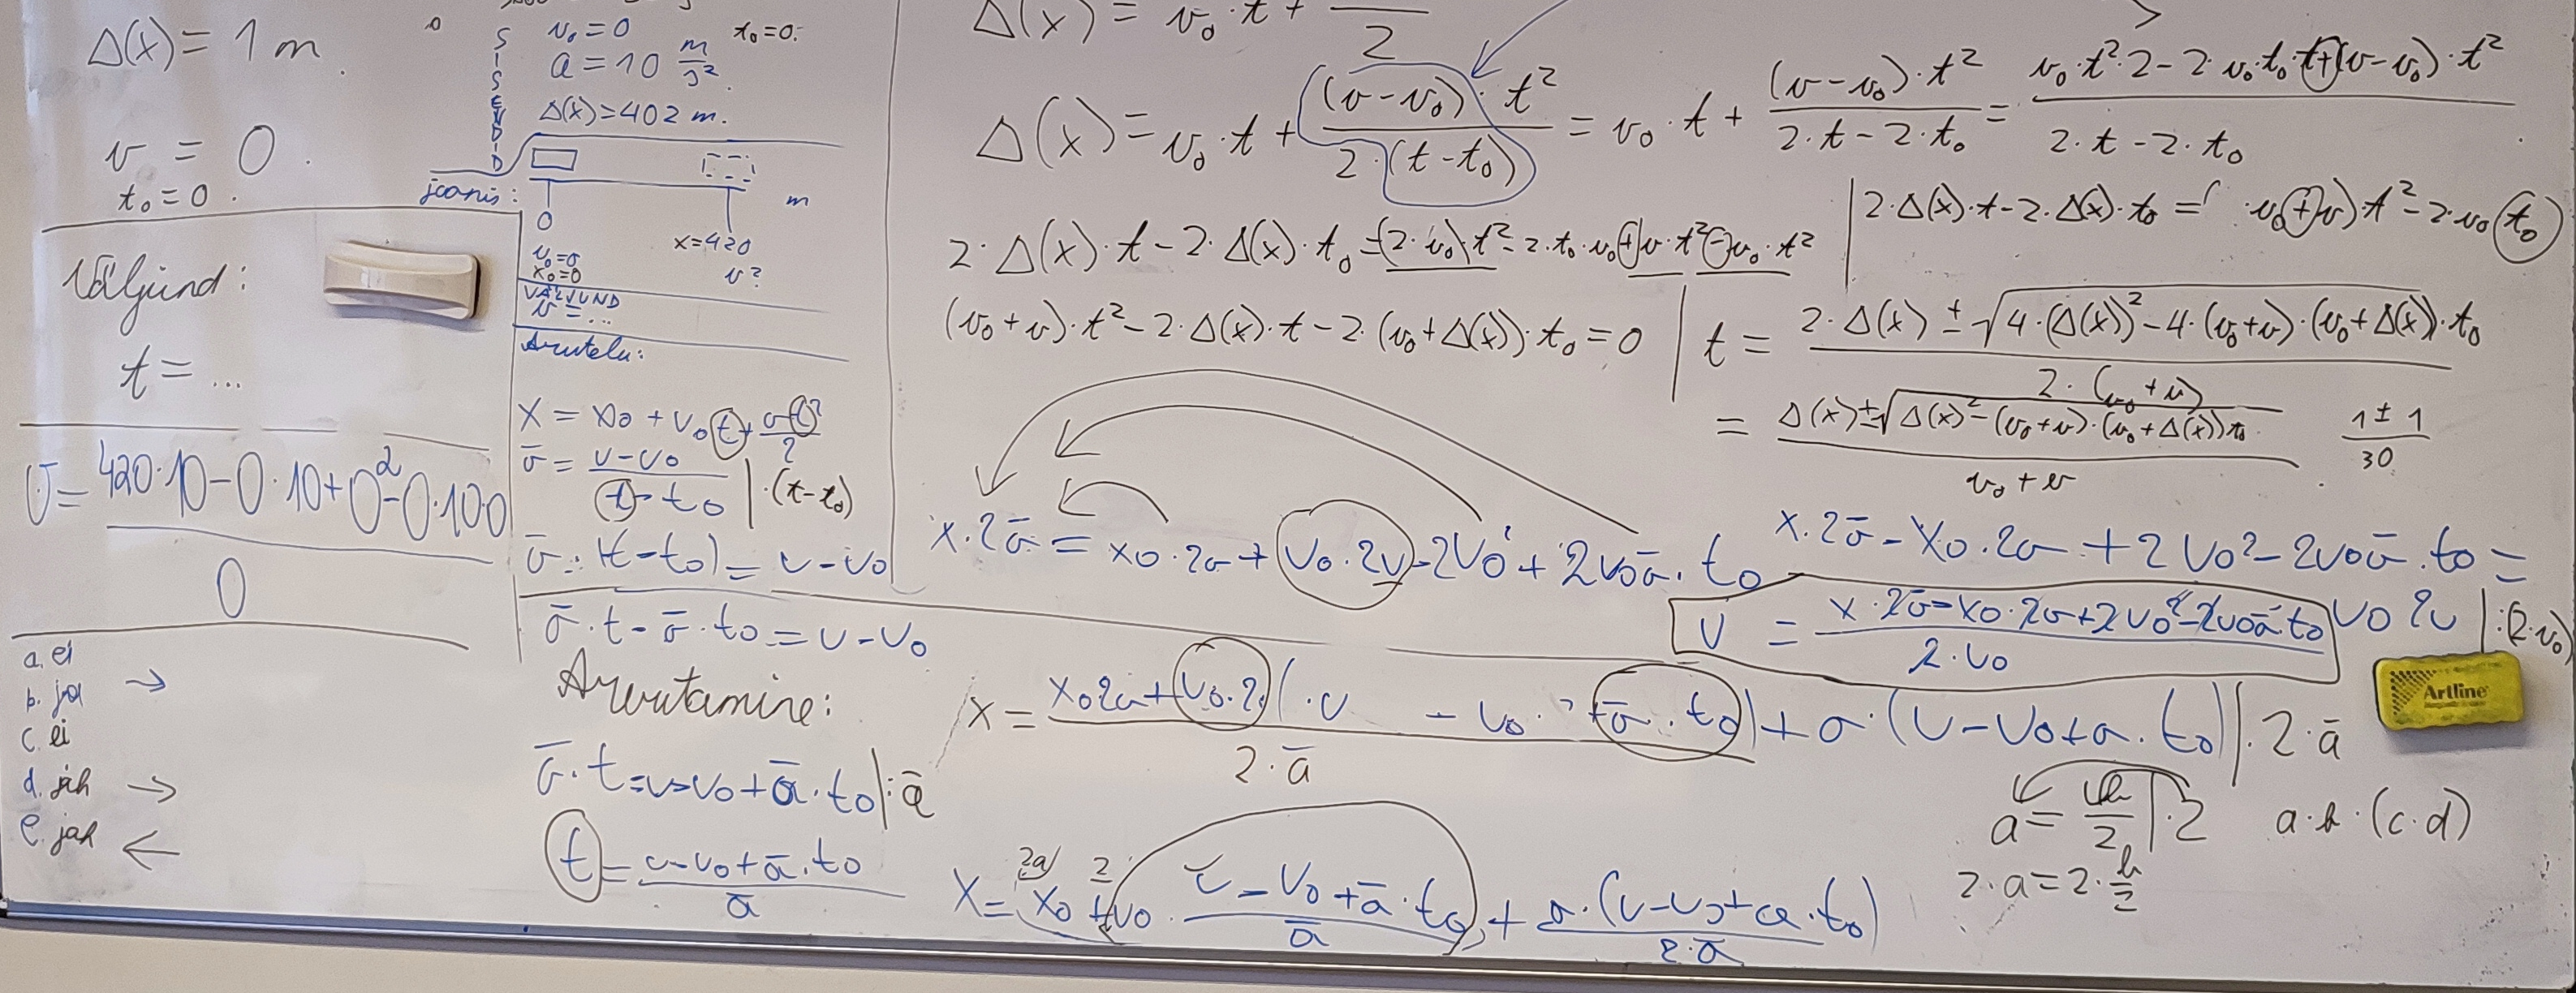 Δ(x) = 1 m.
v = 0.
t₀ = 0.
Väljund:
t = ...
v = (420·10 − 0·10 + 0² − 0·10·0) / 0
a. ei
b. ja →
c. ei
d. jah →
e. jah ←
SISENDID
v₀ = 0
t₀ = 0.
a = 10 m/s².
Δ(x) = 402 m.
joonis:
m
0
x = 420
v₀ = 0
x₀ = 0
v?
VÄLJUND
v = ...
Arutelu:
x = x₀ + v₀t + at²/2
a̅ = (v − v₀)/(t − t₀) | ·(t − t₀)
a̅ · (t − t₀) = v − v₀
a̅ · t − a̅ · t₀ = v − v₀
Arvutamine:
a̅ · t = v − v₀ + a̅ · t₀ | : a̅
t = (v − v₀ + a̅ · t₀)/a̅
Δ(x) = v₀ · t + /2
Δ(x) = v₀ · t + (v − v₀) · t² / 2 · (t − t₀) = v₀ · t + (v − v₀) · t² / 2 · t − 2 · t₀ = v₀ · t² · 2 − 2 · v₀ · t₀ · t + (v − v₀) · t² / 2 · t − 2 · t₀
2 · Δ(x) · t − 2 · Δ(x) · t₀ = (2 · v₀) t² − 2 · t₀ · v₀ + v · t² − v₀ · t²
2 · Δ(x) · t − 2 · Δ(x) · t₀ = ( · v₀ + v) · t² − 2 · v₀ t₀
(v₀ + v) · t² − 2 · Δ(x) · t − 2 · (v₀ + Δ(x)) · t₀ = 0
t = (2 · Δ(x) ± √(4 · (Δ(x))² − 4 · (v₀ + v) · (v₀ + Δ(x)) · t₀)) / 2 · (v₀ + v)
= (Δ(x) ± √(Δ(x)² − (v₀ + v) · (v₀ + Δ(x)) t₀)) / v₀ + v
1 ± 1 / 30
x · 2a̅ = x₀ · 2a + v₀ · 2v − 2v₀² + 2v₀a̅ · t₀
x · 2a̅ − x₀ · 2a + 2v₀² − 2v₀a̅ · t₀ =
v₀ 2v | : (2 · v₀)
v = (x · 2a̅ − x₀ · 2a + 2v₀² − 2v₀a̅ · t₀) / 2 · v₀
Artline
x = x₀2a + v₀ · 2 ( · v − v₀ · + a̅ · t₀) / 2 · a̅ + a · (v − v₀ + a · t₀) | · 2 · a̅
a = b/2 | · 2
a · b · (c · d)
2 · a = 2 · b/2
2a 2
x = x₀ + v₀ · (v − v₀ + a̅ · t₀)/a̅ + a · (v − v₀ + a · t₀) / 2 · a̅